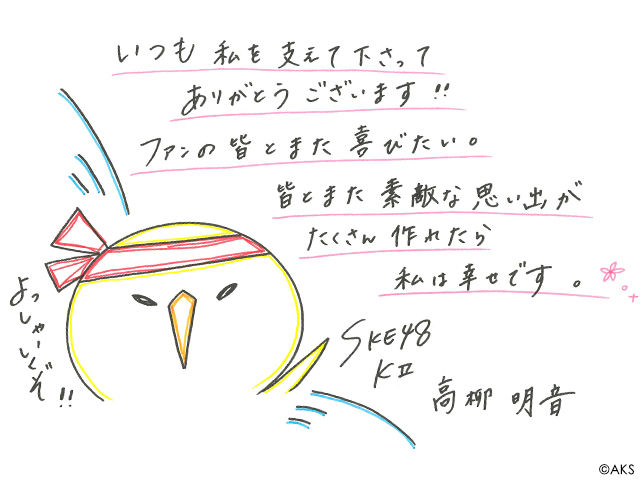 いつも 私を 支えて下さって
ありがとうございます!!
ファンの皆とまた喜びたい。
皆とまた素敵な思い出が
たくさん作れたら
私は幸せです。
よっしゃーいくぞ!!
SKE48
KⅡ
高柳 明音
©AKS